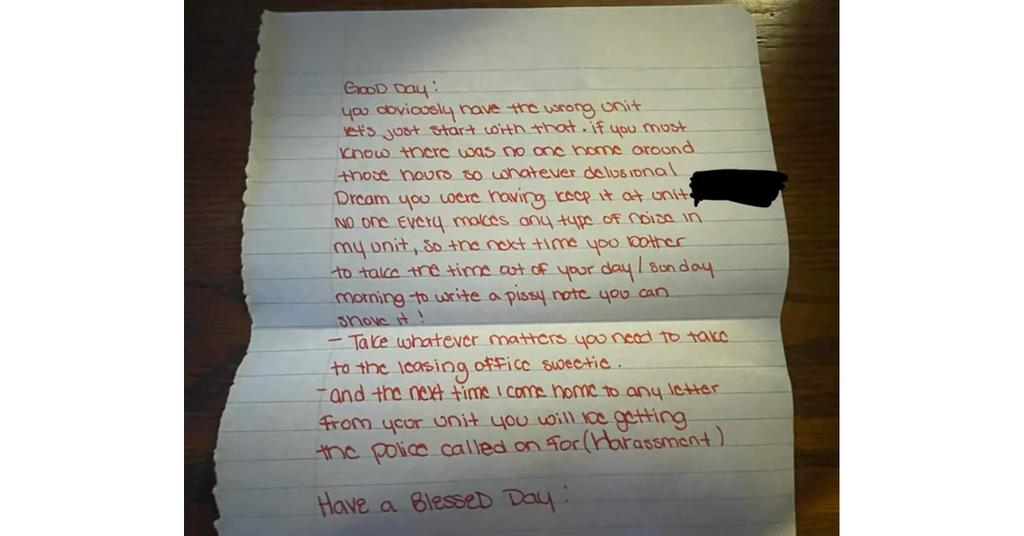 GOOD DAY:
you obviously have the wrong unit
let's just start with that. if you must
know there was no one home around
those hours so whatever delusional
Dream you were having keep it at unit
NO one Every makes any type of noise in
my unit, so the next time you bother
to take the time out of your day/sunday
morning to write a pissy note you can
shove it!
- Take whatever matters you need to take
to the leasing office sweetie.
- and the next time i come home to any letter
from your unit you will be getting
the police called on for (Harassment)
Have a Blessed Day: